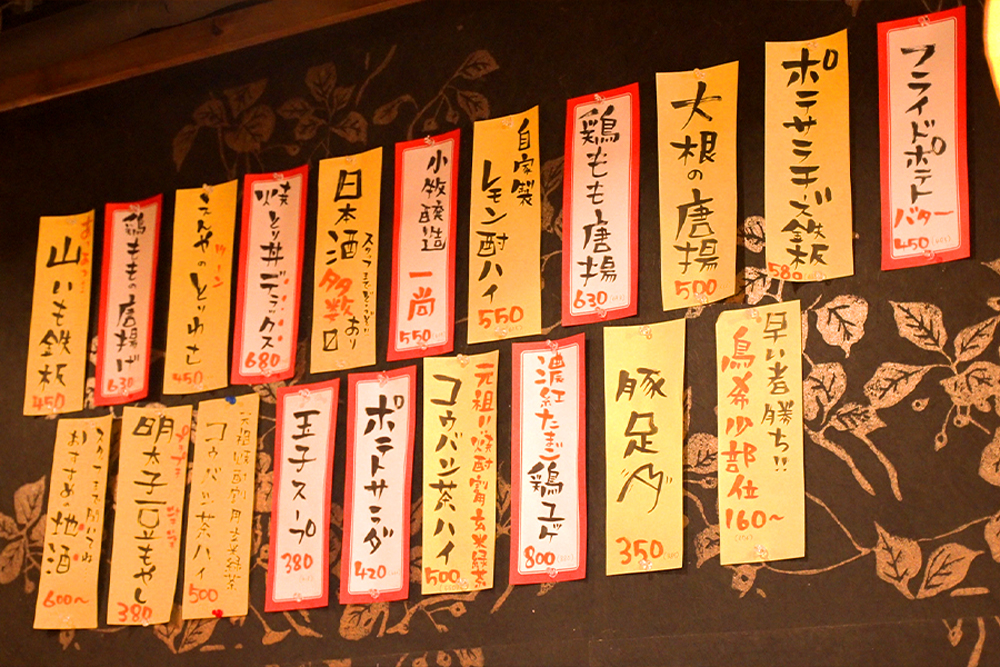 フライドポテト
バター
450
ポテサラチーズ鉄板
580
大根の唐揚
500
鶏もも唐揚
630
自家製
レモン酎ハイ
550
小牧醸造
一尚
550
日本酒
スタッフまでどーぞ
多数あり
焼とり丼デラックス
680
とりわさ
450
鶏ももの唐揚げ
630
山いも鉄板
450
早い者勝ち!!
鳥希少部位
160~
豚足
350
濃紅たまご
鶏ユッケ
800
元祖い焼酎割玄米緑茶
コウバシ茶ハイ
500
ポテトサラダ
420
玉子スープ
380
コウバシ茶ハイ
500
明太子豆もやし
380
おすすめの地酒
600~